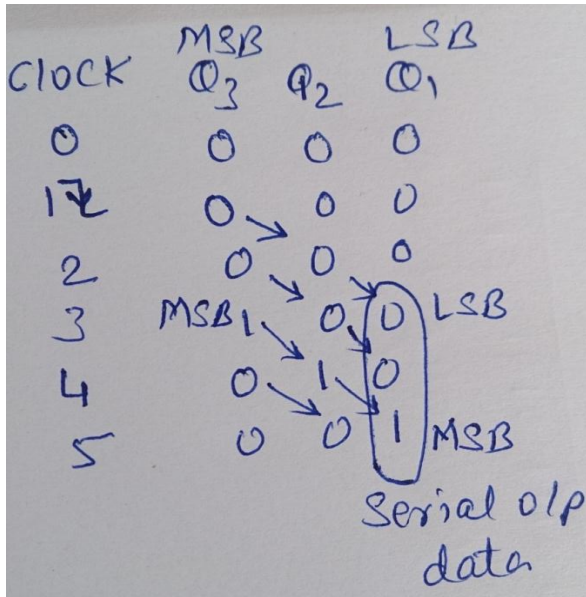 MSB LSB
Clock Q3 Q2 Q1
0 0 0 0
1 0 0 0
2 0 0 0
3 MSB 1 0 0 LSB
4 0 1 0
5 0 0 1 MSB
Serial o/p
data